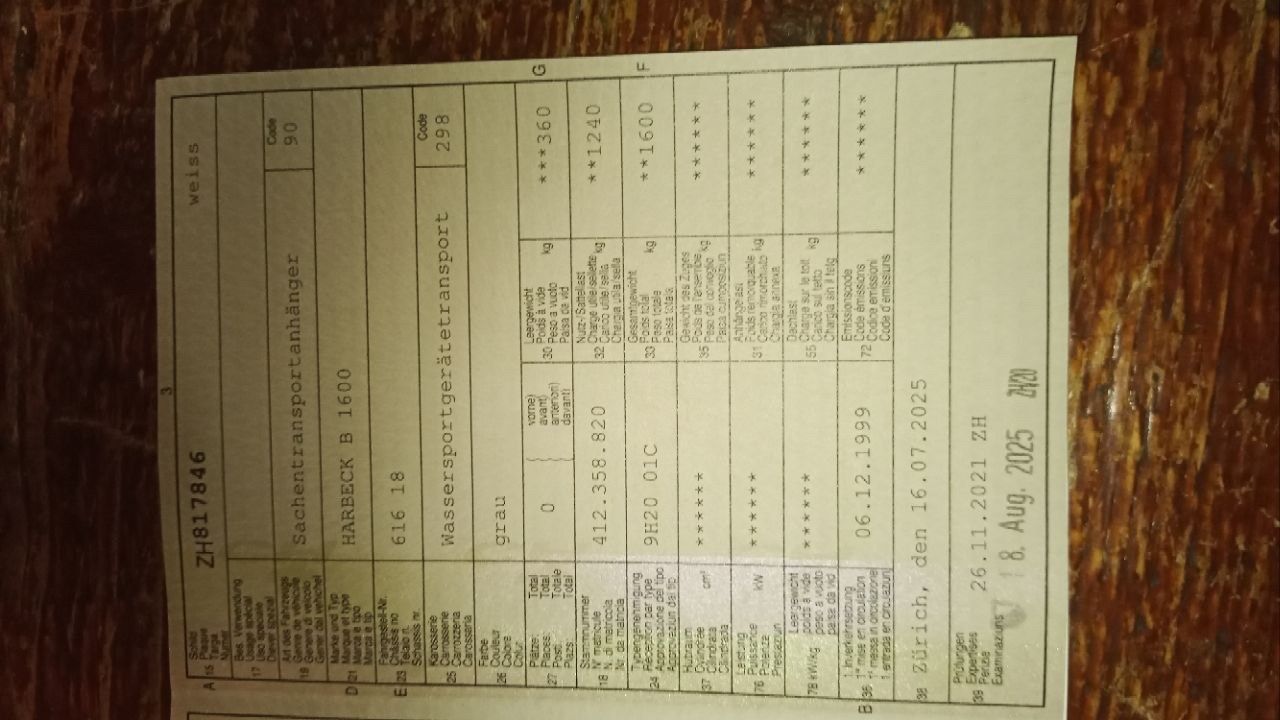 3
A 15 Schild
Plaque
Targa
Numer
ZH817846 weiss
17 Bes. Verwendung
Usage spécial
Uso speciale
Diever spezial
19 Art des Fahrzeugs
Genre de véhicule
Genere di veicolo
Gener dal vehichel
Sachentransportanhänger
Code
90
D 21 Marke und Typ
Marque et type
Marca e tipo
Marca e tip
HARBECK B 1600
E 23 Fahrgestell-Nr.
Châssis no
Telaio n.
Schassis nr.
616 18
25 Karosserie
Carrosserie
Carrozzeria
Carossaria
Wassersportgerätetransport
Code
298
26 Farbe
Couleur
Colore
Colur
grau
27 Plätze: Total
Places: Total
Posti: Totale
Plazs: Total
0
vorne)
avant)
anteriori)
davant)
30 Leergewicht
Poids à vide
Peso a vuoto
Paisa da vid
kg
***360
G
18 Stammnummer
N° matricule
N. di matricola
Nr. da matricla
412.358.820
32 Nutz-/Sattellast
Charge utile/sellette
Carico utile/sella
Chargia utila/sella
kg
**1240
24 Typengenehmigung
Réception par type
Approvazione del tipo
Approvaziun dal tip
9H20 01C
33 Gesamtgewicht
Poids total
Peso totale
Paisa totala
kg
**1600
F
37 Hubraum
Cylindrée
Cilindrata
Cilindrada
cm³
******
35 Gewicht des Zuges
Poids de l'ensemble
Peso del convoglio
Paisa cumposiziun
kg
*******
76 Leistung
Puissance
Potenza
Prestaziun
kW
******
31 Anhängelast
Poids remorquable
Carico rimorchiato
Chargia annexa
kg
*******
78 kW/kg Leergewicht
poids à vide
peso a vuoto
paisa da vid
******
55 Dachlast
Charge sur le toit
Carico sul tetto
Chargia sin il tetg
kg
*******
B 36 1. Inverkehrsetzung
1re mise en circulation
1a messa in circolazione
1. entrada en circulaziun
06.12.1999
72 Emissionscode
Code émissions
Codice emissioni
Code d'emissiuns
*******
38 Zürich, den 16.07.2025
39 Prüfungen
Expertises
Perizie
Examinaziuns
26.11.2021 ZH
18. Aug. 2025 ZH20